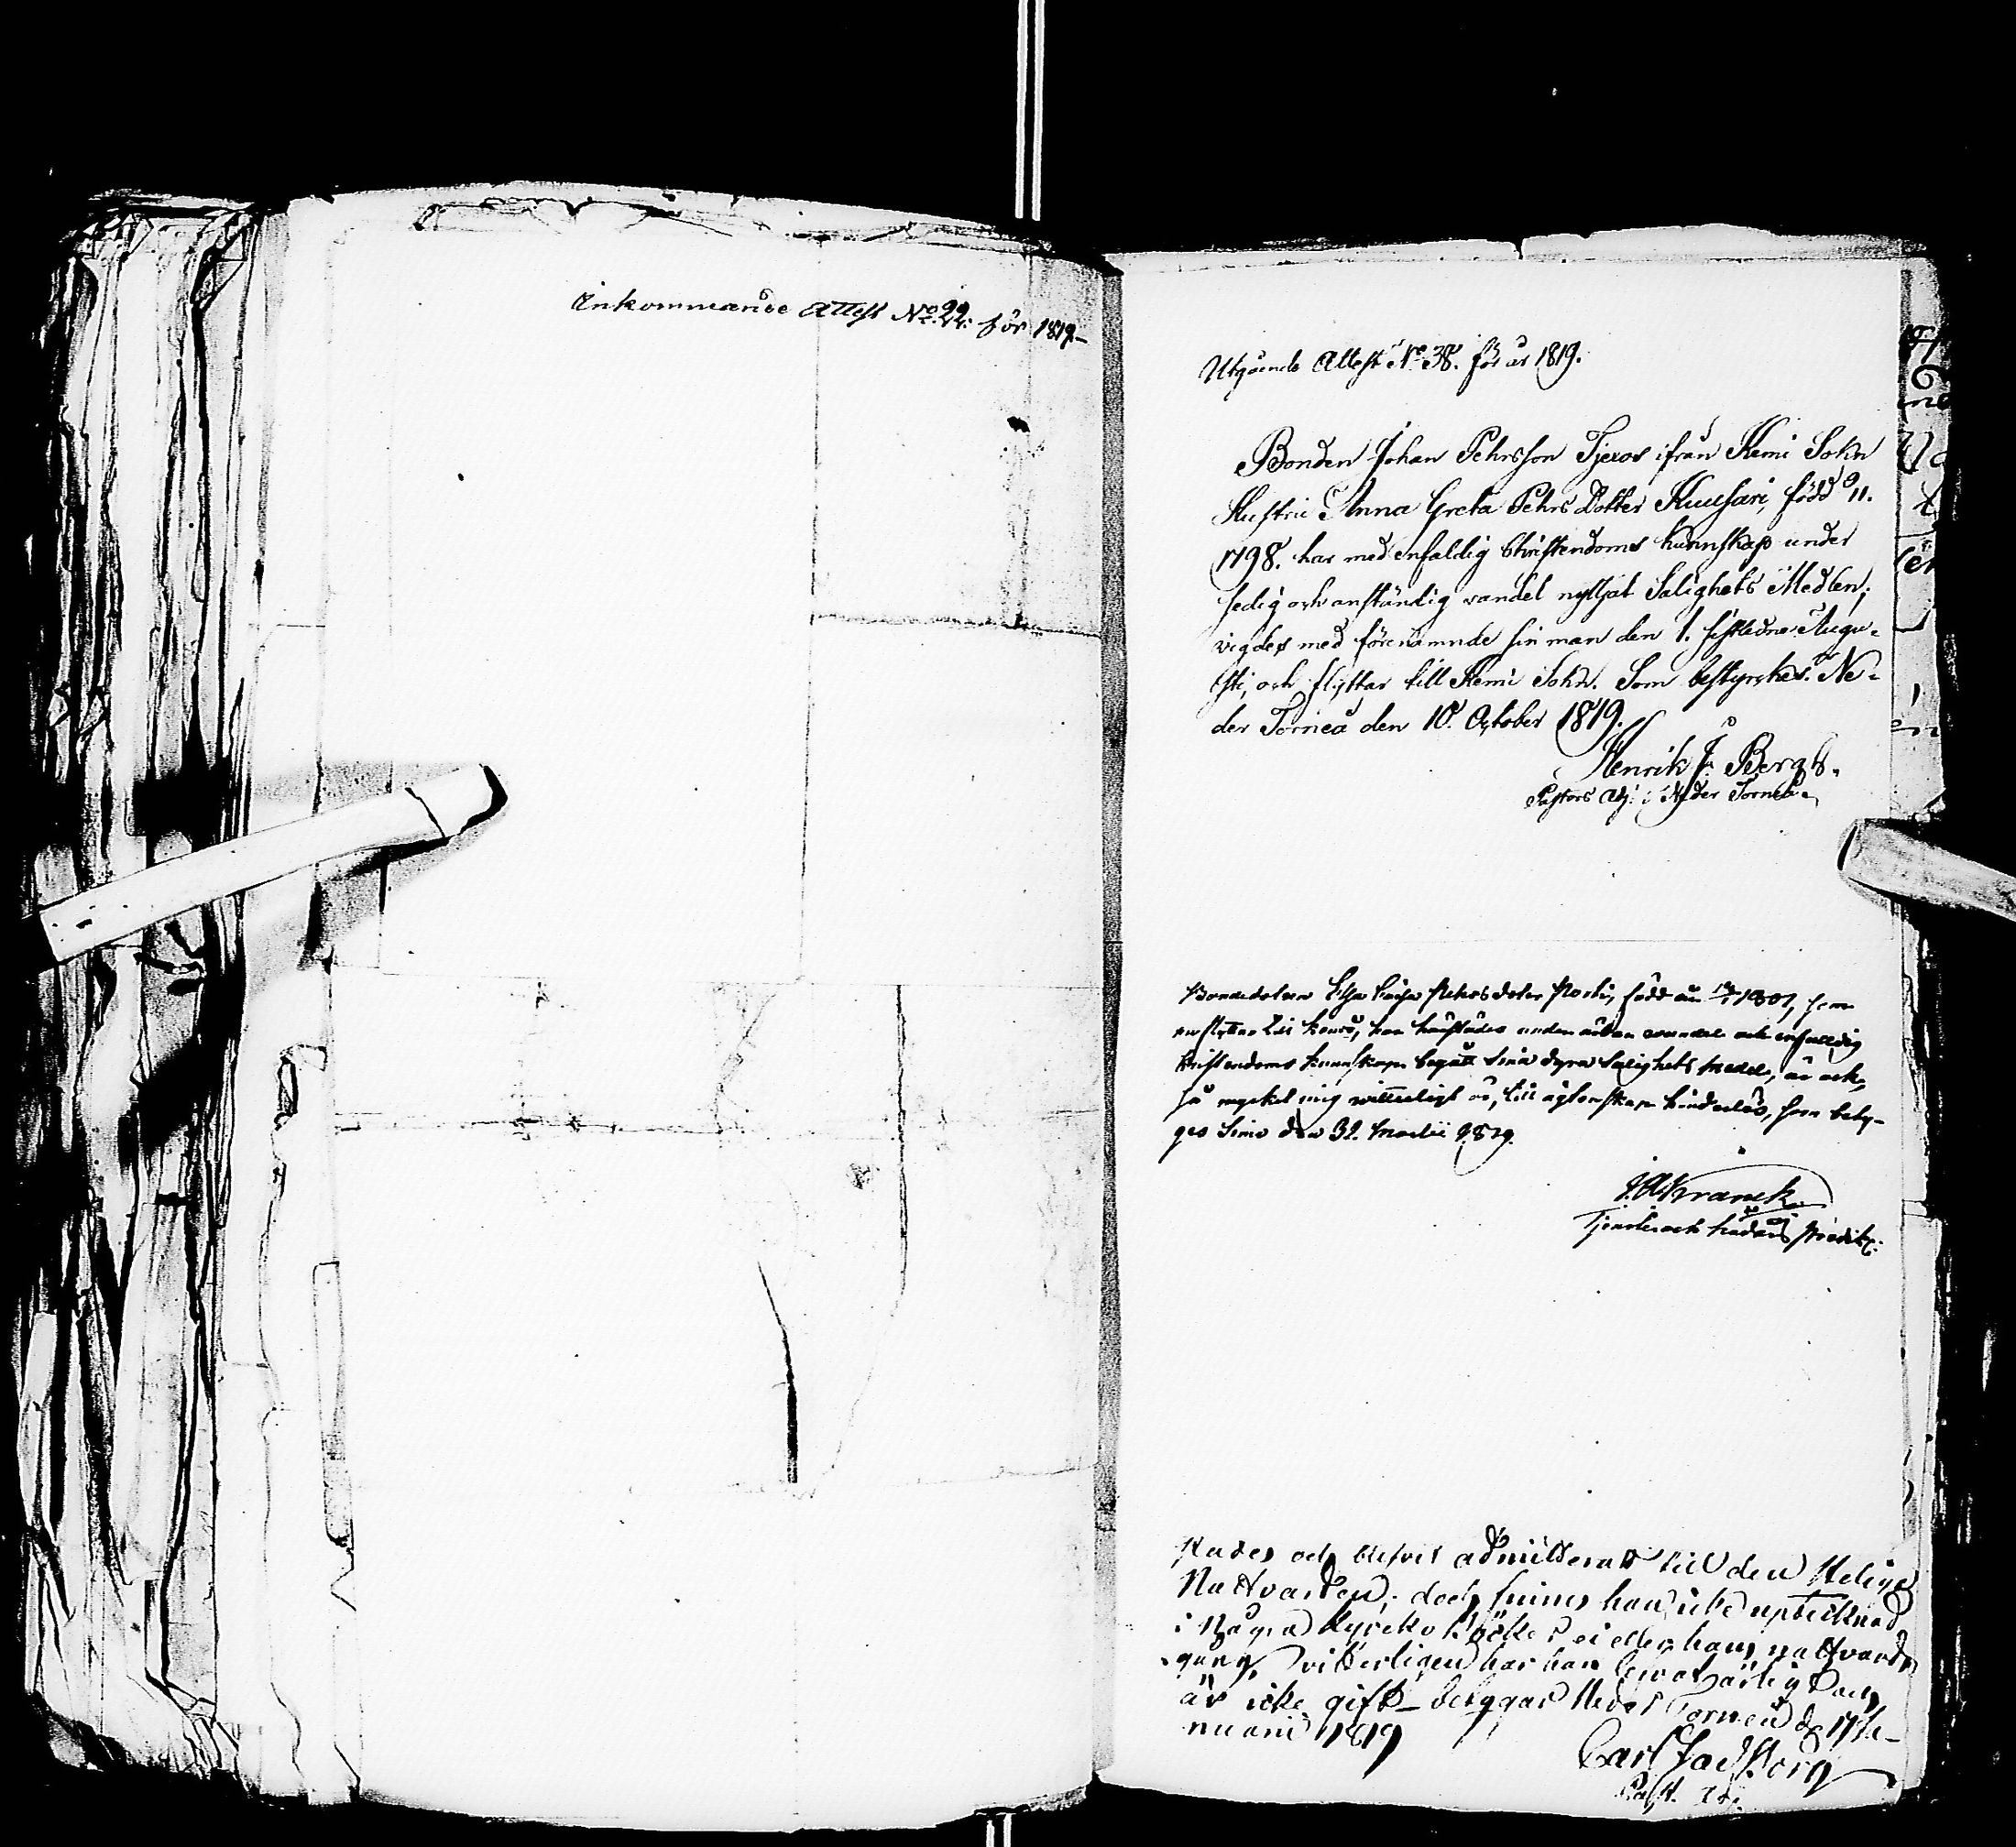 Inkommande Attest No. 22. för 1819.-
Utgående Attest No. 38. för år 1819.
Bonden Johan Pehrsson Tjeros ifrån Kemi Sokn
Hustru Anna Greta Pehrs Dotter Kuusari, född
1798. har med enfaldig Christendoms kunnskap under
sedig och anständig vandel nyttjat Salighets Medlen;
vigdes med förenämnde sin man den 1. sistledne Augu-
sti, och flyttar till Kemi Sokn. Som bestyrkes. Ne-
der Torneå den 10. October 1819.
Henrik J. Bergh.
Pastors Adj. i Neder Torneå.
Bondedotren Lisa Caisa Pehrsdoter Porti, född 1801, som
nu flyttar till har under ärbar wandel och enfaldig
kristendoms kunnskap begått sina dyra Salighets medel, är ock,
så mycket mig witterligt är, till ägtenskap hinderlös, som bety-
ges Simo den 31. Martii 1819.
J. W. Franck
och Predik:
och blifvit admitterad till den Helige
Nattvarden; dock finnes han icke uptecknad
i några kyrko böcker ei eller hans nattvards
gång, vitterligen har han lewat ärligt och
är icke gift - betygar Neder Torneå d 17 Ja-
nuarii 1819
Carl Jac Borg
Past. Adj.